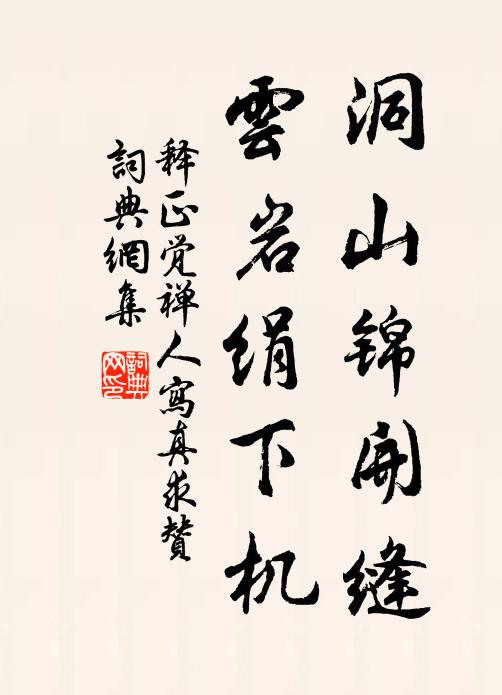 洞山锦開縫
雲岩绢下机
释正觉禅人寫真求赞
詞典網集
詞典网印